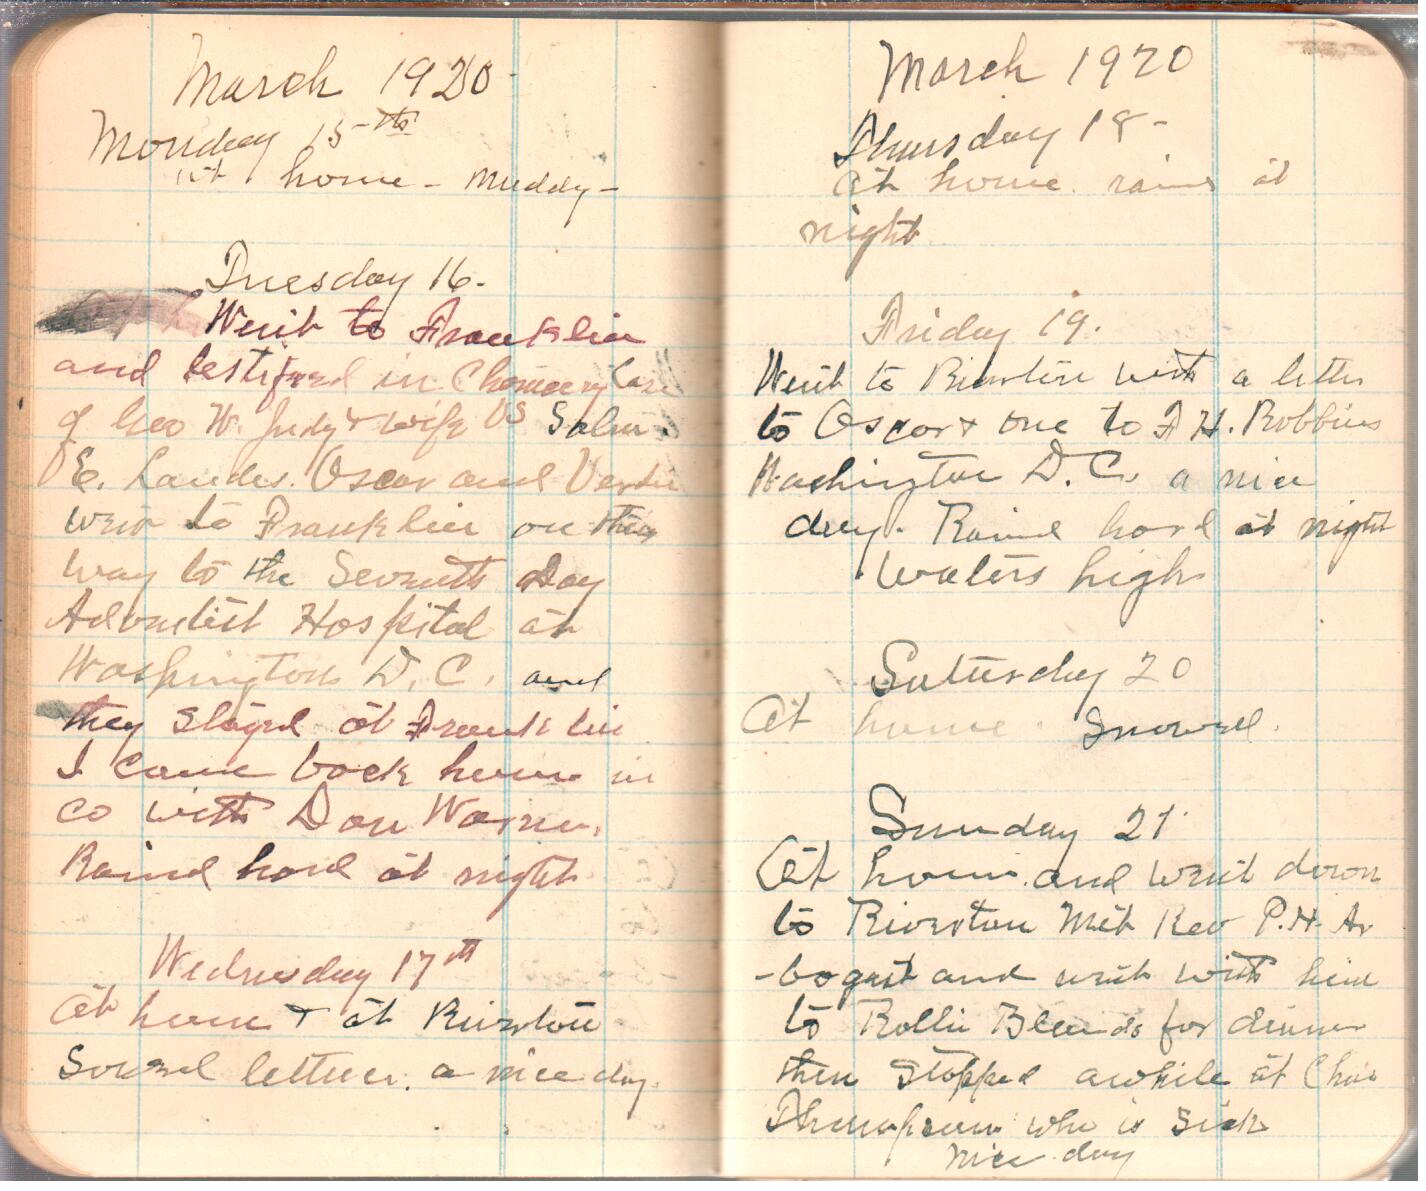 March 1920
Monday 15-th
at home - Muddy -
Tuesday 16.
Went to Franklin
and testifyed in Chancery Case
of Geo W. Judy & wife VS
E. Landes. Oscar and
went to Franklin on
way to the Seventh Day
Advintist Hospital at
Washington D. C. and
they stayed at Franklin
I came back home in
co with Don Warner.
Raind hard at night
Wednesday 17th
At home & at Riverton
Sowed lettuce. a nice day.
March 1920
Thursday 18 -
At home rained at
night
Friday 19.
Went to Riverton with a letter
to Oscar & one to F. H. Robbins
Washington D. C. a nice
day. Raind hard at night
Waters high
Saturday 20
At home. Snowed.
Sunday 21
At home and went down
to Riverton Met Rev P. H. Ar
-bogast and went with him
to Rollie Blands for dinner
then stopped awhile at
Thompson who is Sick
nice day